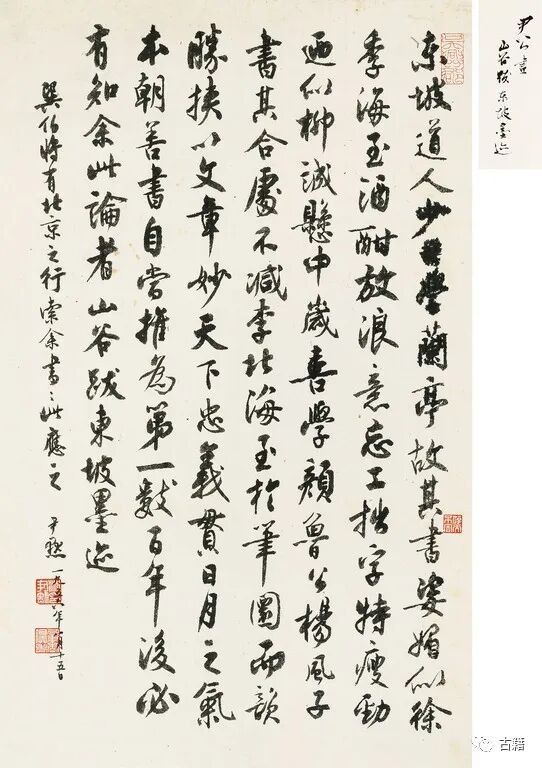 东坡道人少日学蘭亭故其書姿媚似徐
季海至酒酣放浪意忘工拙字特瘦勁
迺似柳誠懸中歲喜學顏魯公楊風子
書其合處不減李北海至於筆圜而韻
勝挟以文章妙天下忠義貫日月之氣
本朝善書自當推為第一數百年後必
有知余此論者山谷跋東坡墨迹
巽伯將有北京之行索余書書此應之
尹默
一九五六年一月十五日
尹公書
山谷跋东坡墨迹
古籍